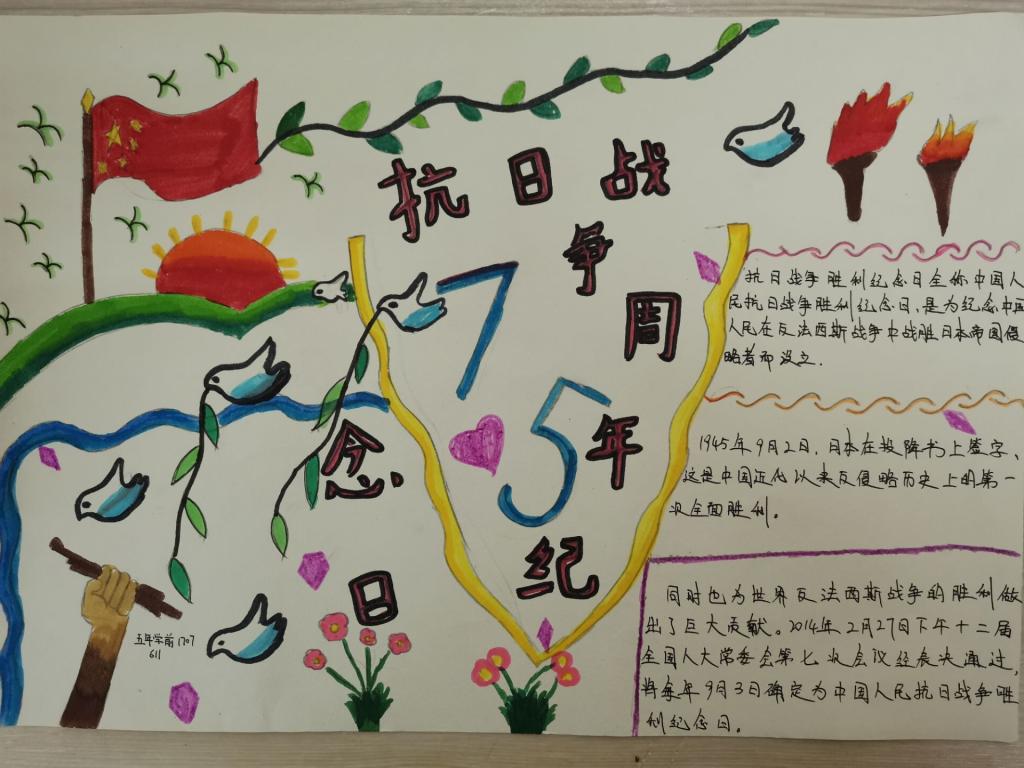 抗日战
争
周
75
年
纪
念
日
抗日战争胜利纪念日全称中国人
民抗日战争胜利纪念日,是为纪念中国
人民在反法西斯战争中战胜日本帝国侵
略者而设立.
1945年9月2日,日本在投降书上签字,
这是中国近代以来反侵略历史上的第一
次全面胜利。
同时也为世界反法西斯战争的胜利做
出了巨大贡献。2014年2月27日下午十二届
全国人大常委会第七次会议经表决通过,
将每年9月3日确定为中国人民抗日战争胜
利纪念日。
五年学前1707
611